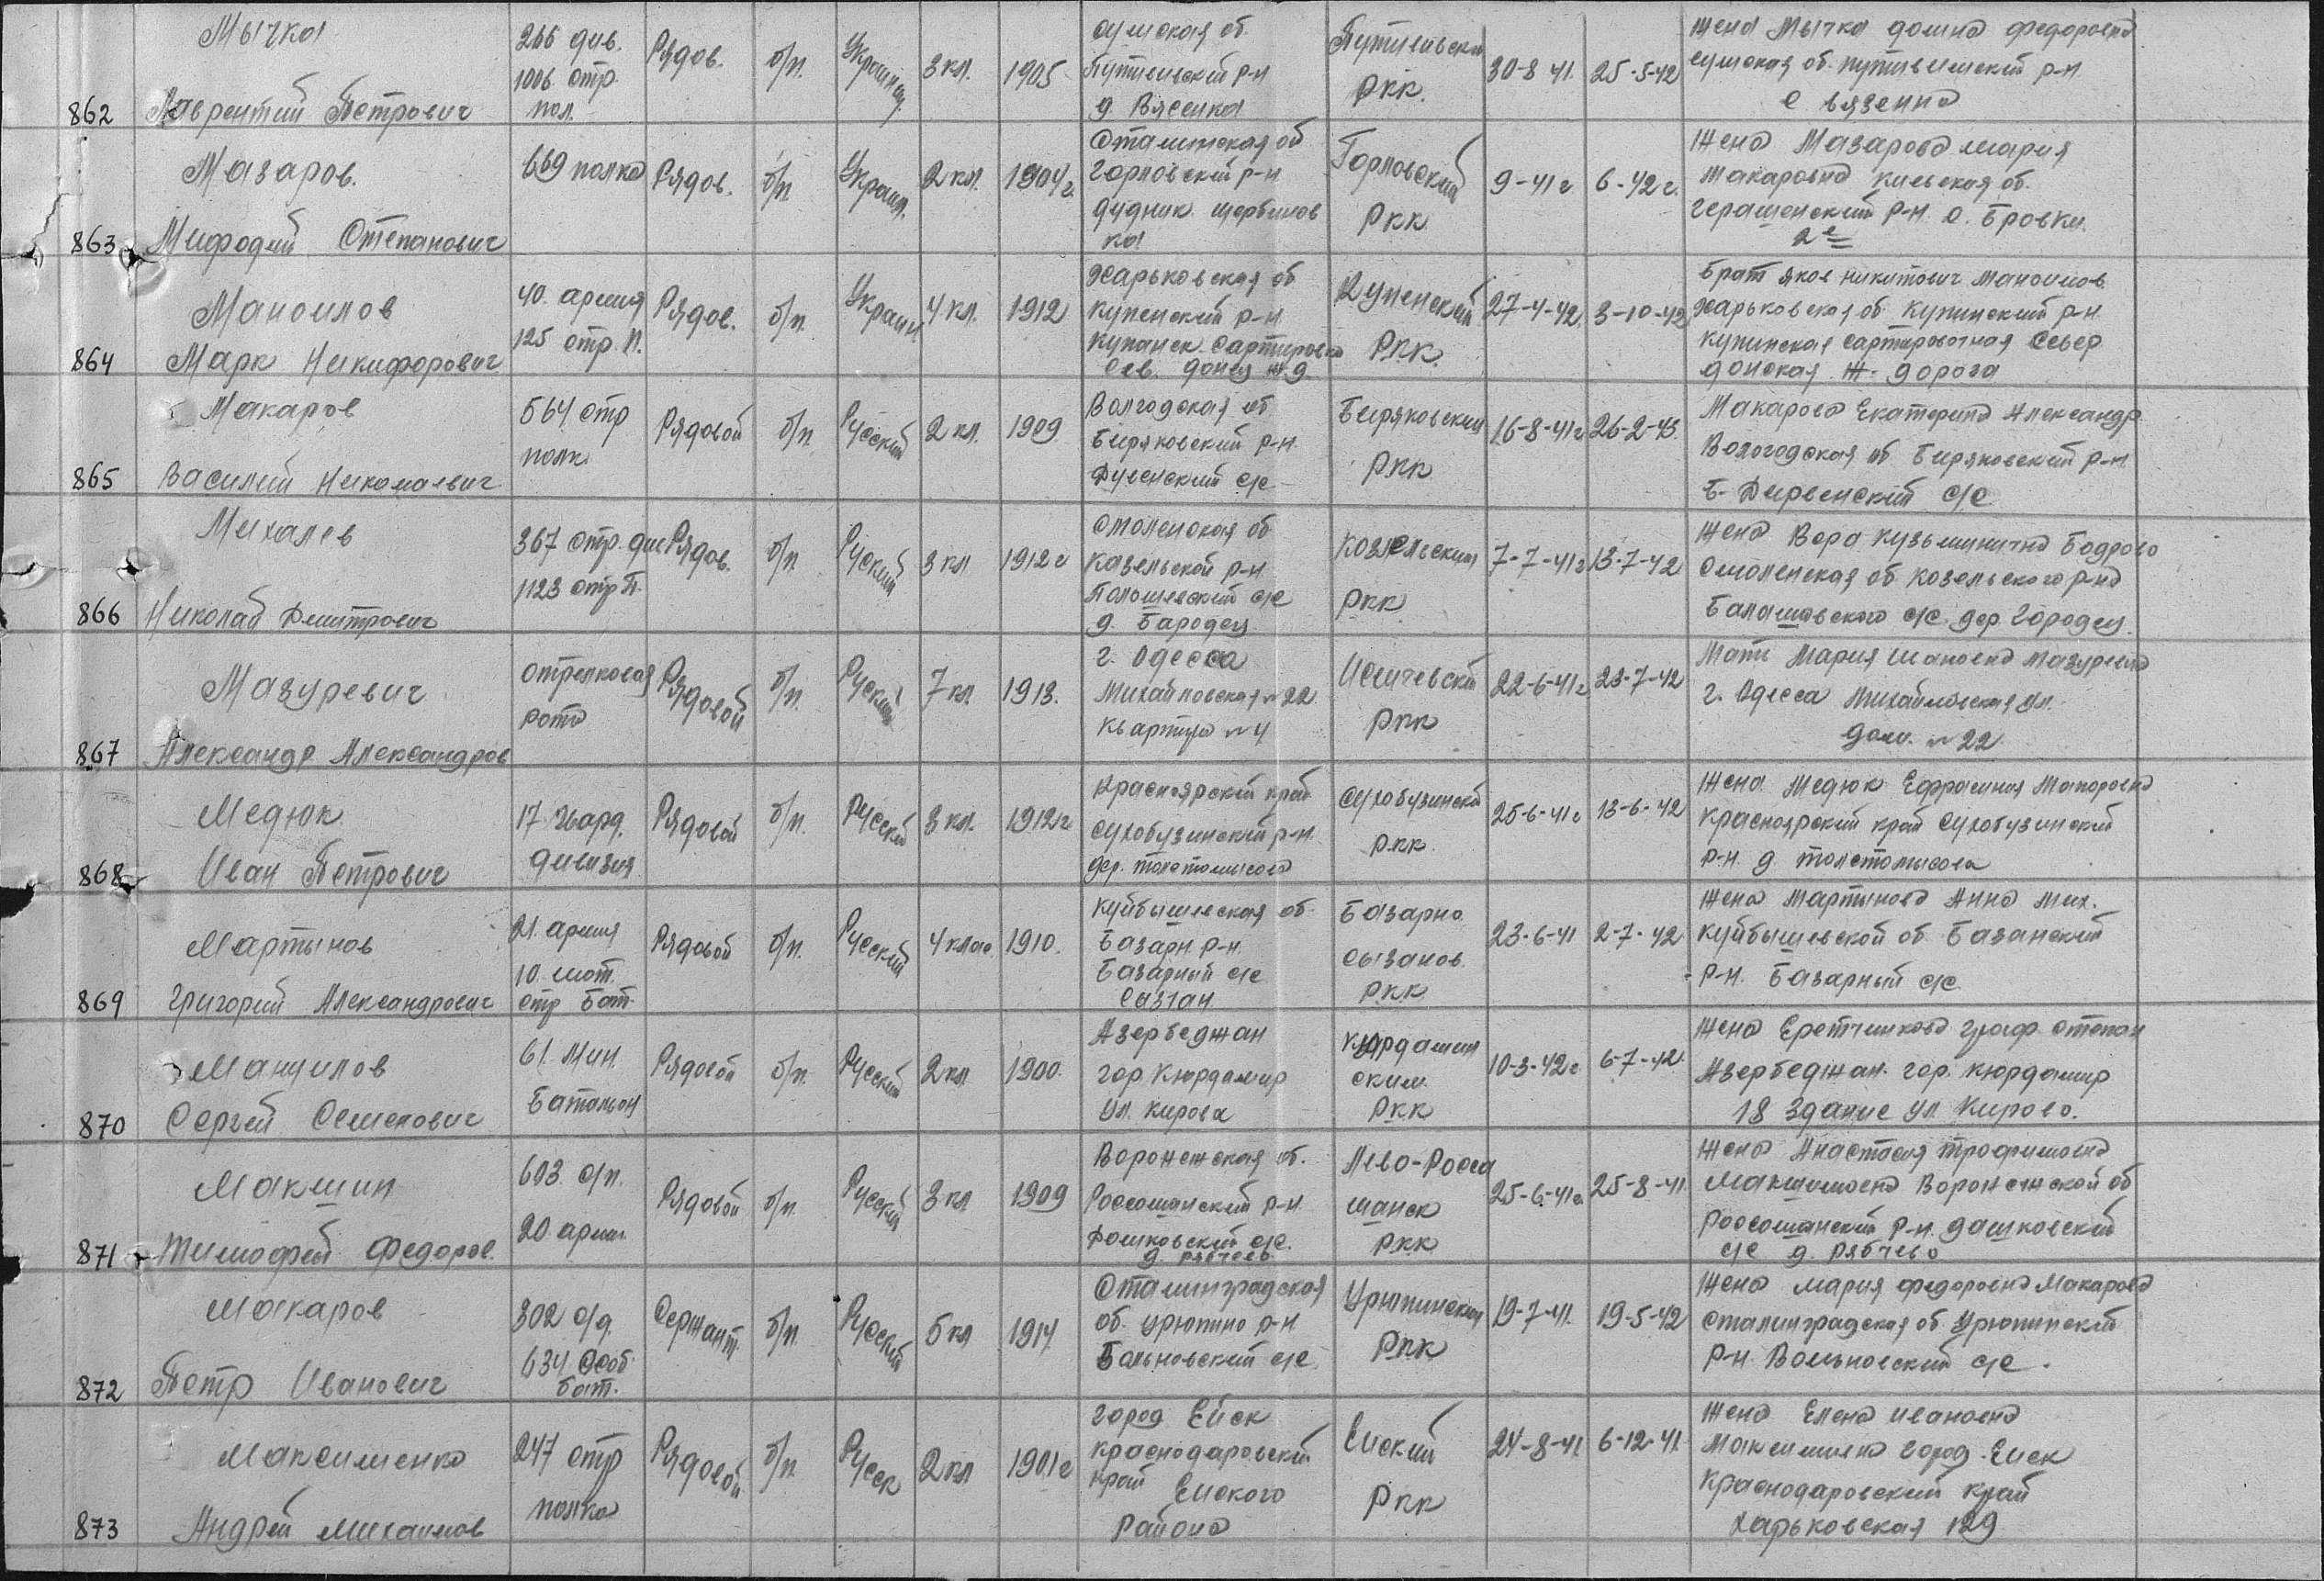 862
Мычка
Лаврентий Петрович
266 див.
1006 стр.
пол.
Рядов.
б/п.
Украинец
3 кл.
1905
сумская об.
Путивльский р-н
д. Вясенка
Путивльски
РКК.
30-8 41.
25-5-42
жена Мычка домна федоровна
сумская об. путивлшский р-н
с вязенна
863
Мазаров.
Мифодий Степанович
669 полка
Рядов.
б/п
Украин.
2 кл.
1904г
Сталинская об
Горловский р-н
дудник щербинов
ка
Горловский
РКК
9-41 г
6-42 г.
Жена Мазарова мария
макаровна киевская об.
герашенский р-н. с. Бровки.
2е
864
Маноилов
Марк Никифорович
40. армия
125 стр. п.
Рядов.
б/п.
Украин
4 кл.
1912
Харьковская об
Купенский р-н
Купанск. Сартировка
Сев. донец ж.д.
Купенский
РКК.
27-4-42.
3-10-42
Брат яков никитович маноилов
Харьковская об. Купинский р-н
купинская сартировочная Север
донская Ж-дорога
865
Макаров
Василий Николаевич
564 стр
полк
Рядовой
б/п.
Русский
2 кл.
1909
Волгодская об
Биряковский р-н.
Дувенский с/с
Биряковский
РКК
16-8-41г
26-2-43.
Макарова Екатерина Александр.
Вологодская об Биряковский р-н
Б-Дирвенский с/с
866
Михалев
Николай Дмитрович
367 стр. див
1123 стр П.
Рядов.
б/п.
Руский
3 кл
1912 г
Смоленская об
Казельской р-н
Полошевский с/с
д. Бародец
Козельским
РКК
7-7-41 г
13-7-42
Жена Вера Кузьминична Бодрово
Смоленская об козельского р-на
Балашовского с/с дер. Городец
867
Мазуревич
Александр Александров
стрелковая
рота
Рядовой
б/п.
Руский
7 кл.
1913.
г. Одесса
Михайловская №22
Квартира №4
РКК
22-6-41г
23-7-42
Мать Мария Ивановна Мазуревич
г. Одесса Михайловская ул.
дом. №22
868
Медюк
Иван Петрович
17 Гвард.
дивизия
Рядовой
б/п.
Русский
3 кл.
1912г
Красноярский край
Сухобузинский р-н.
дер. толстомысова
Сухобузинской
РКК.
25-6-41г
13-6-42
Жена Медюк Ефрасиния
Красноярский край Сухобузинский
р-н. д толстомысова
869
Мартынов
Григорий Александрович
21. армия
10. мот.
стр Бат.
Рядовой
б/п.
Русский
4 клас
1910.
куйбышевская об.
Базарн р-н.
Базарный с/с
Сазган
Базарно
сызанов.
РКК
23-6-41
2-7-42
Жена Мартынова Анна Мих.
Куйбышевской об Базанский
р-н. Базарный с/с
870
Мануилов
Сергей Семенович
61. Мин.
Батальон
Рядовой
б/п.
Русский
2 кл
1900.
Азербеджан
гор. Кюрдамир
ул. Кирова
Кюрдамин
ским
РКК
10-3-42г
6-7-42.
Жена Еретникова граф. степан
Азербеджан. гор. кюрдамир
18 здание ул Кирово.
871
Макшин
Тимофей Федоров.
603. с/п.
20. арми.
Рядовой
б/п.
Русский
3 кл
1909
Воронежская об.
Россошанский р-н.
Дошковский с/с.
д. рябчево
Лево-Росса
шанск
РКК
25-6-41г
25-8-41
жена Анастасия трофимовна
Макшимовна Воронежской об
Россошанский р-н. дашковский
с/с д. рябчево
872
Макаров
Петр Иванович
302 с/д.
634 Особ.
бат.
Сержант.
б/п.
Русский
5 кл
1914
Сталинградская
об. урюпино р-н
Больновский с/с
Урюпинский
РКК
19-7-41.
19-5-42
Жена мария федоровна Макарова
Сталинградская об Урюпинский
р-н. Вольновский с/с.
873
Максименко
Андрей Михаилов
247 стр
полка
Рядовой
б/п.
Русск
2 кл
1901г
город Ейск
краснодаровский
край Ейского
Района
Ейский
РКК
24-8-41
6-12-41.
Жена Елена ивановна
Максименко город. Ейск
Краснодаровский край
харьковская 129